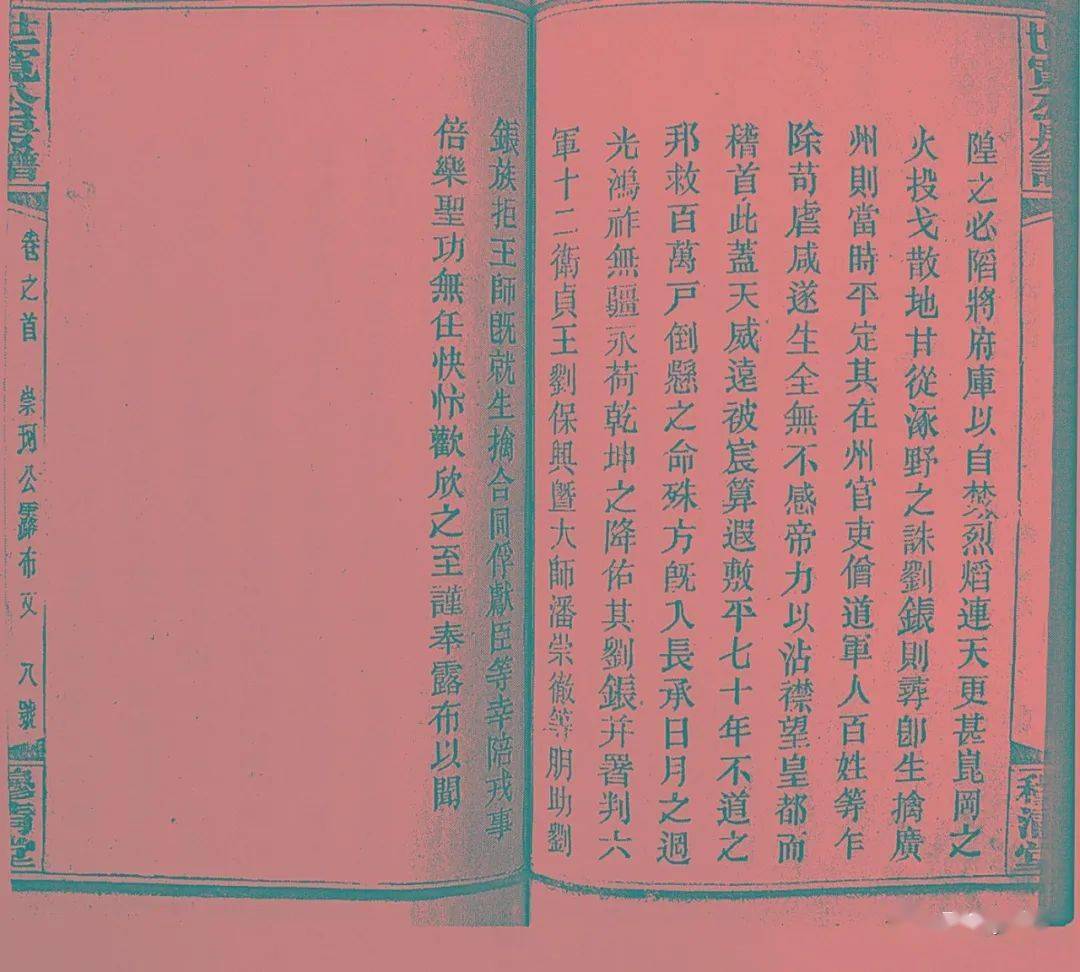 隍之必陷將府庫以自焚烈熖連天更甚崑岡之
火投戈散地甘從涿野之誅劉鋹則尋卽生擒廣
州則當時平定其在州官吏僧道軍人百姓等乍
除苛虐咸遂生全無不感帝力以沾襟望皇都而
稽首此蓋天威遠被宸算遐敷平七十年不道之
邦救百萬戸倒懸之命殊方旣入長承日月之迴
光鴻祚無疆永荷乾坤之降佑其劉鋹幷署判六
軍十二衛貞王劉保興曁大師潘崇徹等朋助劉
鋹族拒王師旣就生擒合同俘獻臣等幸陪戎事
倍樂聖功無任快忭歡欣之至謹奉露布以聞
卷之首
崇珂公露布文
八號